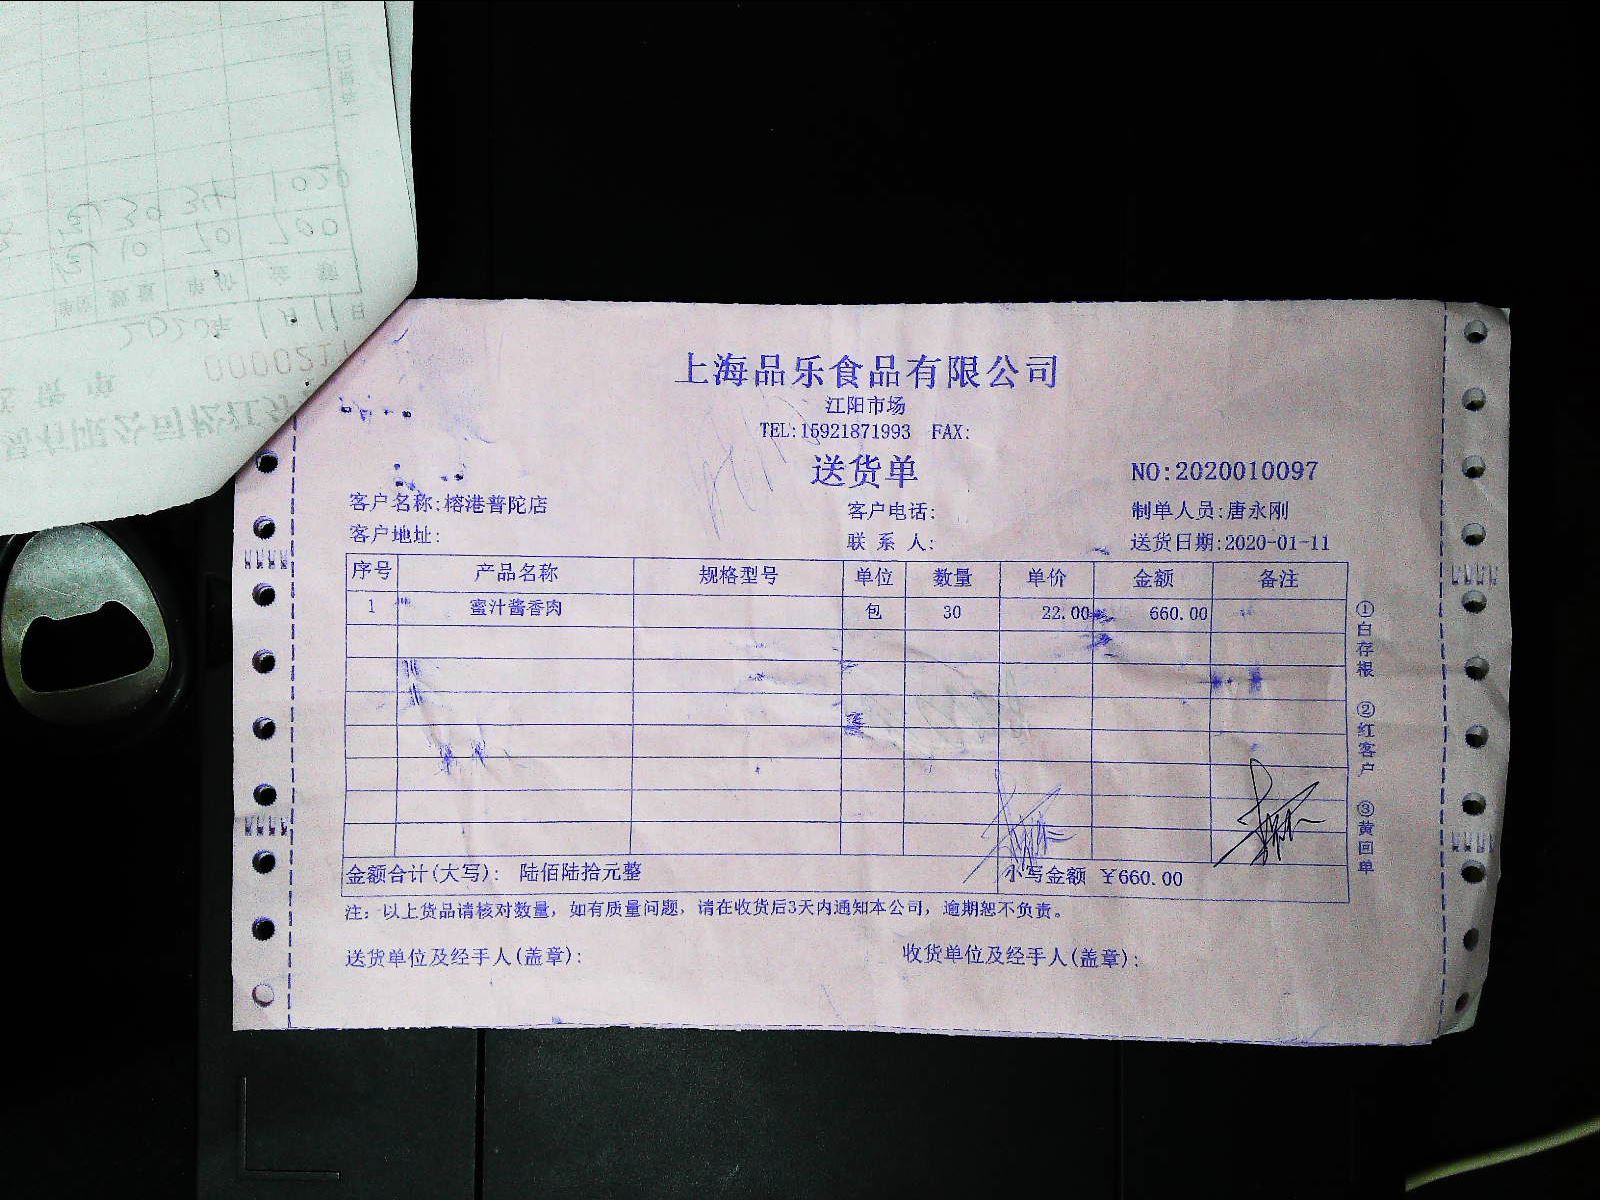 上海品乐食品有限公司
江阳市场
TEL:15921871993 FAX:
送货单 NO:2020010097
客户名称:榕港普陀店 客户电话: 制单人员:唐永刚
客户地址: 联系人: 送货日期:2020-01-11
序号 产品名称 规格型号 单位 数量 单价 金额 备注
1 蜜汁酱香肉 包 30 22.00 660.00
①白存根 ②红客户 ③黄回单
金额合计(大写): 陆佰陆拾元整 小写金额 ¥660.00
注: 以上货品请核对数量, 如有质量问题, 请在收货后3天内通知本公司, 逾期恕不负责。
送货单位及经手人(盖章): 收货单位及经手人(盖章):